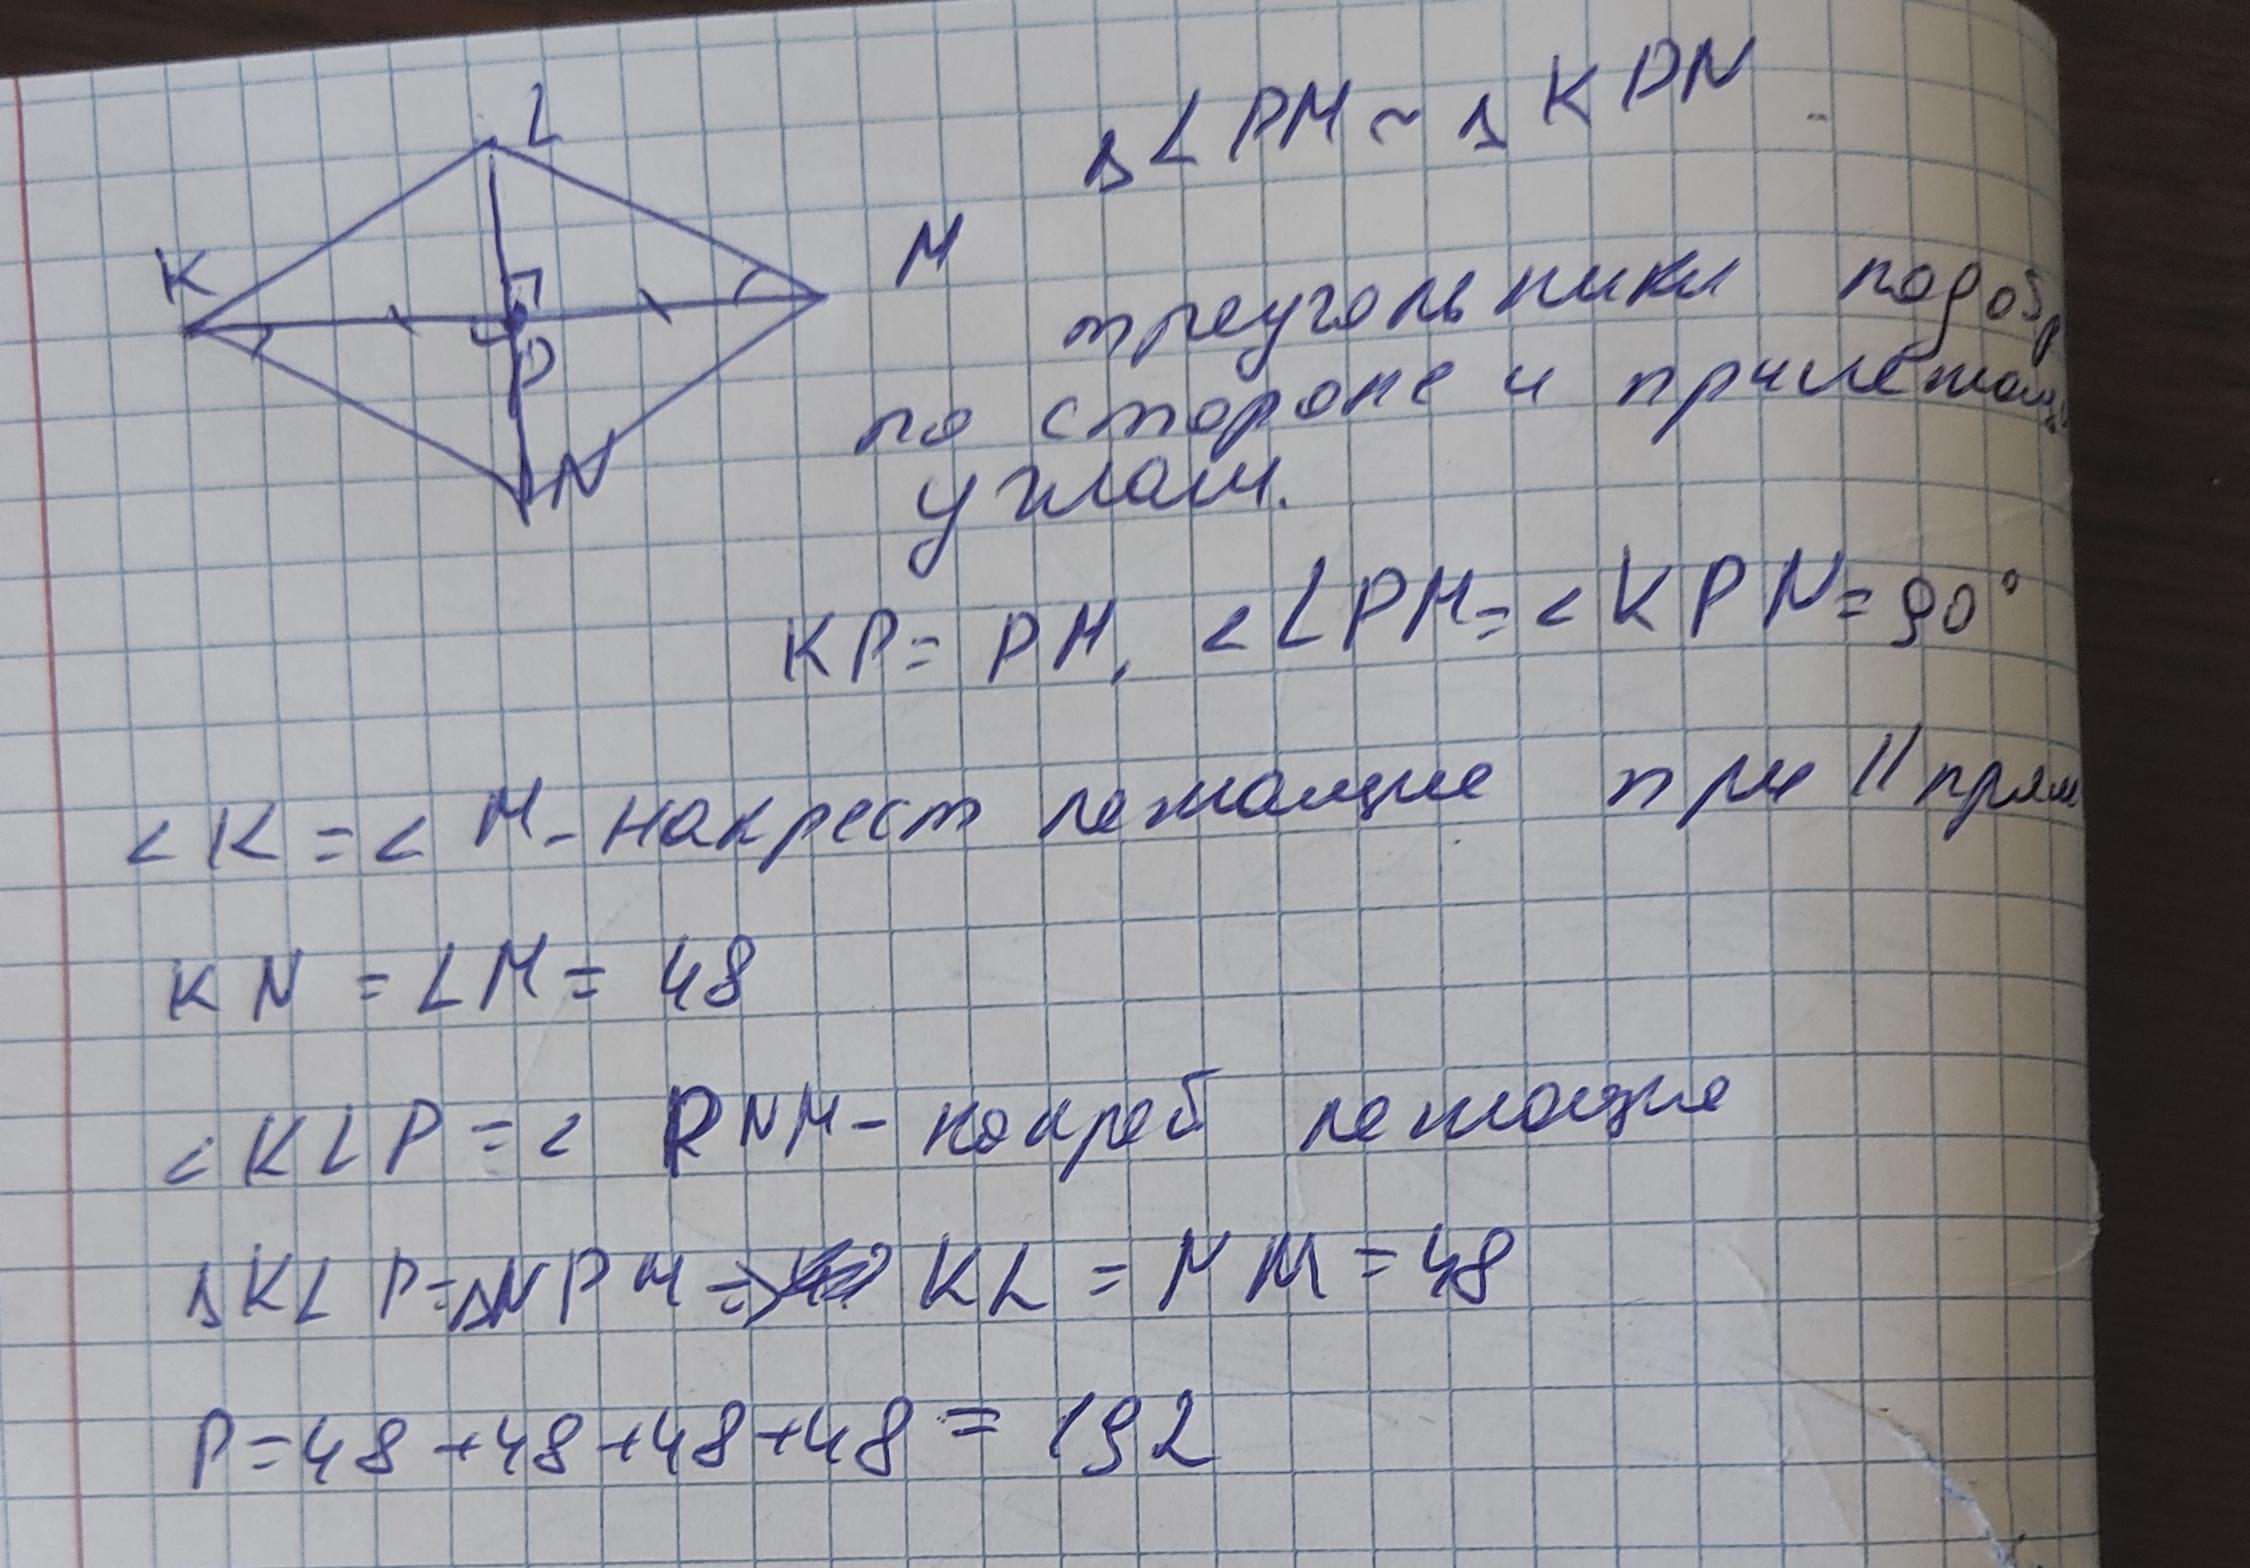 L
K
M
P
N
Δ LPM ~ Δ KPN
треугольники подоб
по стороне и прилежащ
углам.
KP = PM, < LPM = < KPN = 90°
< K = < M - накрест лежащие при || прям
KN = LM = 48
< KLP = < PNM - лежащие
Δ KLP = Δ NPM => KL = NM = 48
P = 48 + 48 + 48 + 48 = 192